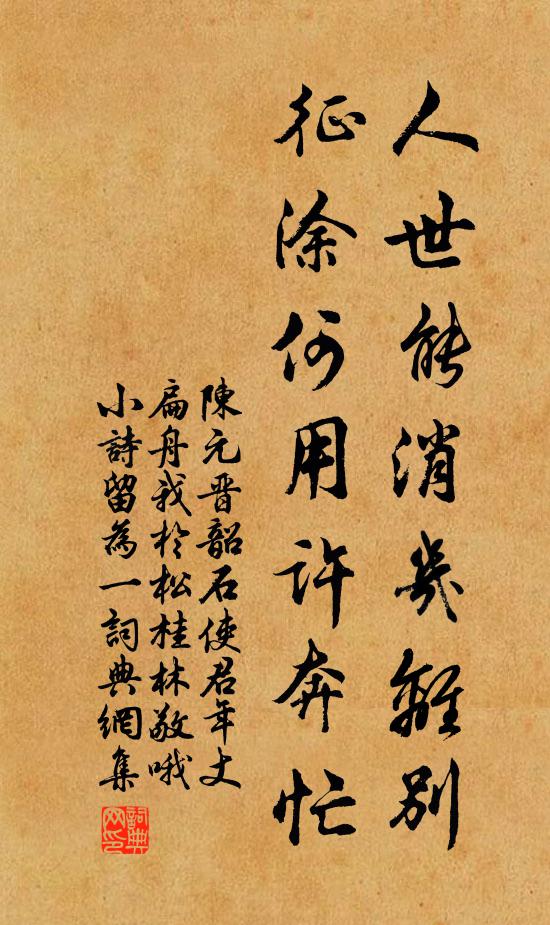 人世能消幾離別
征涂何用許奔忙
陳元晋韶石使君年丈
扁舟我於松桂林敬哦
小詩留為一詞典網集
詞典网印